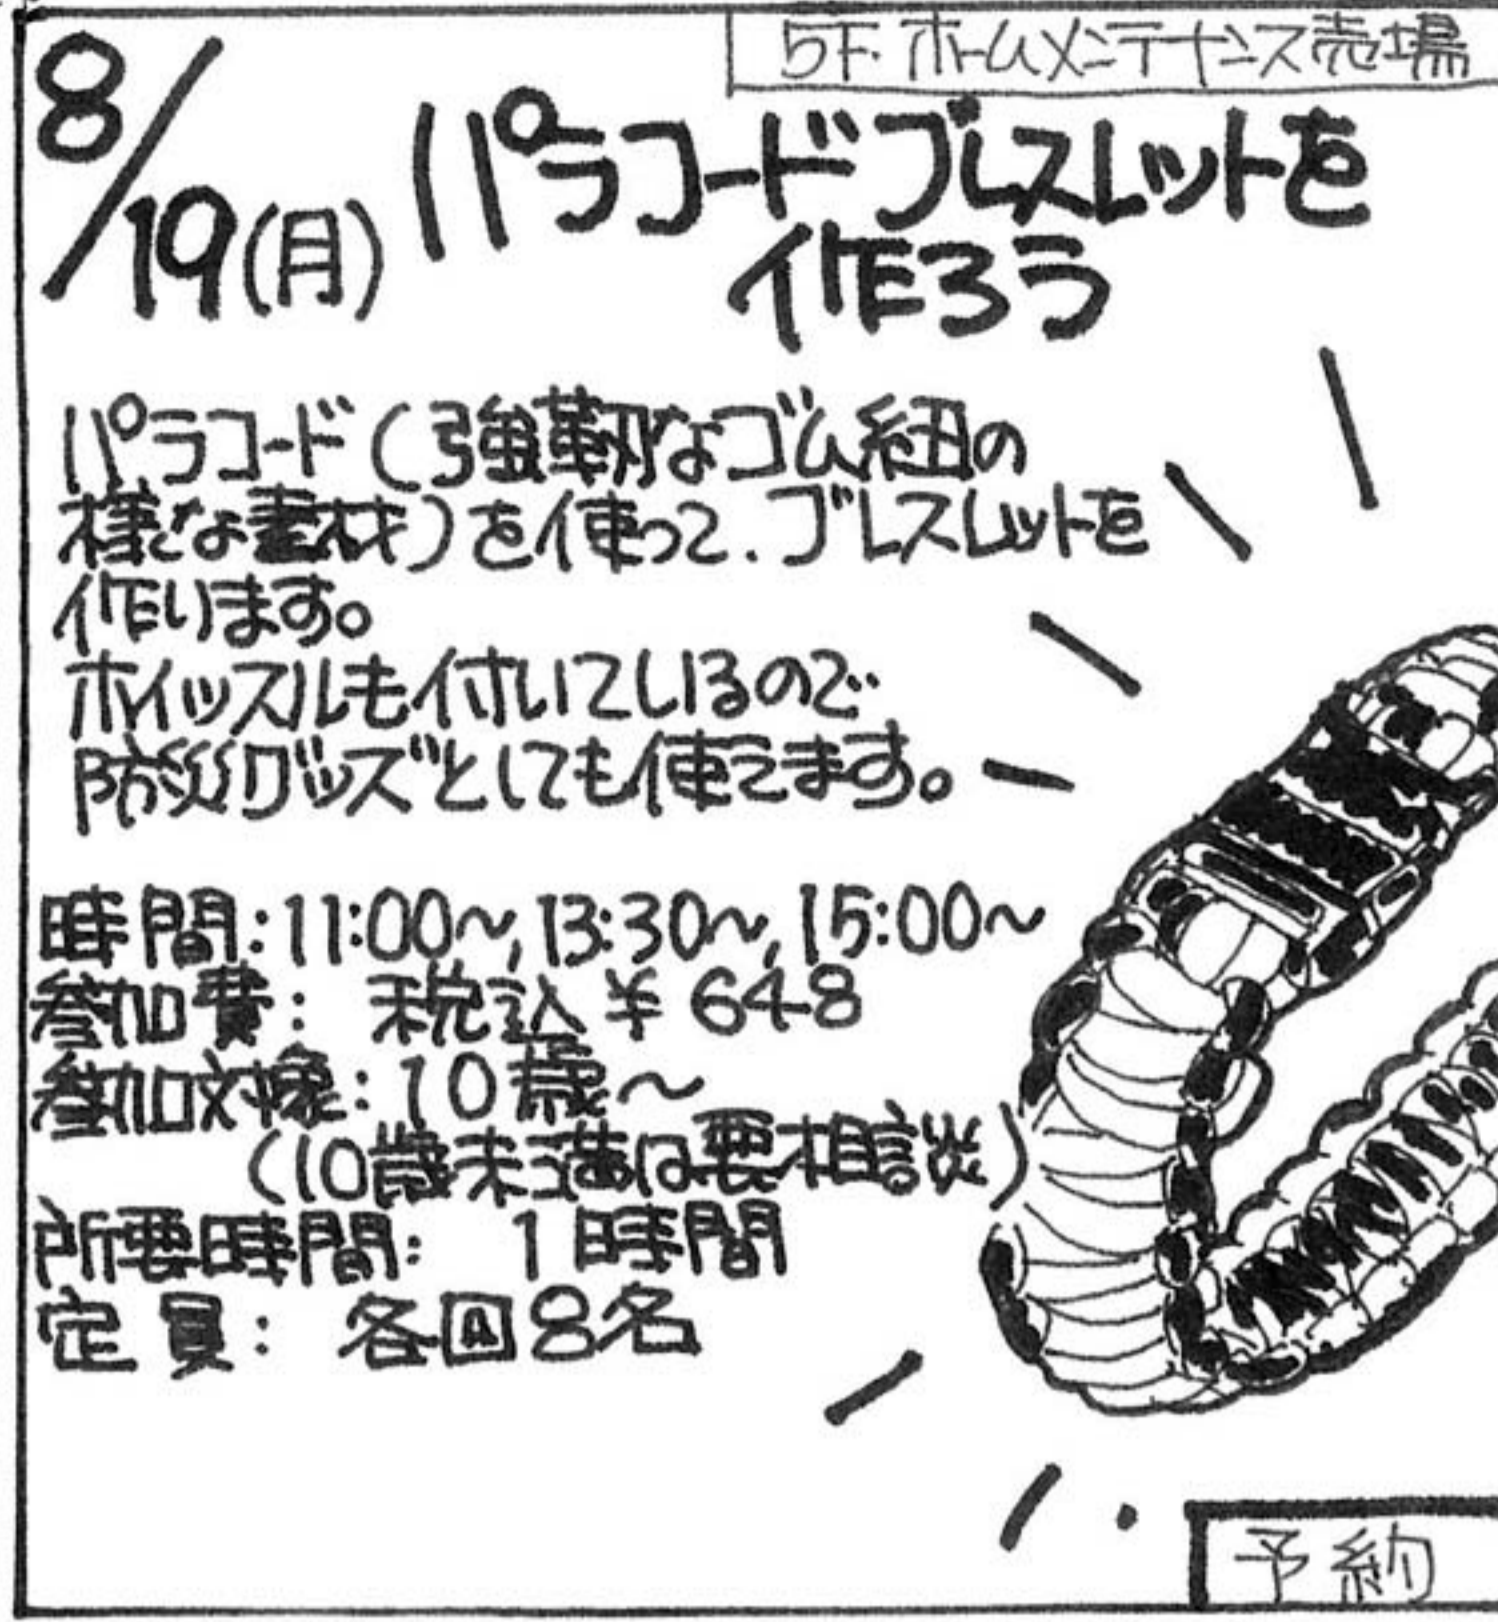 5F. ホームメンテナンス売場
8/19(月)
パラコードブレスレットを
作ろう
パラコード(強靭なゴム紐の
様な素材)を使って、ブレスレットを
作ります。
ホイッスルも付いているので
防災グッズとしても使えます。
時間:11:00~,13:30~,15:00~
参加費: 税込¥648
参加対象:10歳~
(10歳未満は要相談)
所要時間: 1時間
定員: 各回8名
予約